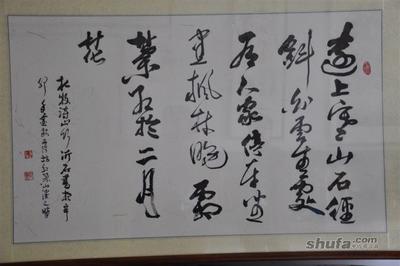 遠上寒山石徑
斜白雲生處
有人家停車坐
愛楓林晚霜
葉紅於二月
花
杜牧詩山行沂石書於辛
卯年
shufa.com